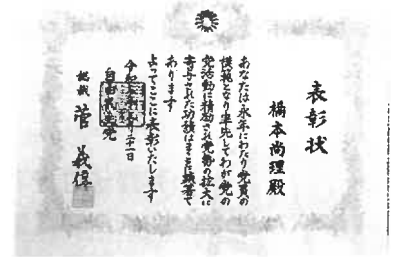 表彰状
橋本尚理殿
あなたは永年にわたり党員の
模範となり率先してわが党の
党活動に精励され党勢の拡大に
寄与された功績はまことに顕著で
あります
よってここに表彰いたします
自由民主党
総裁 菅 義偉